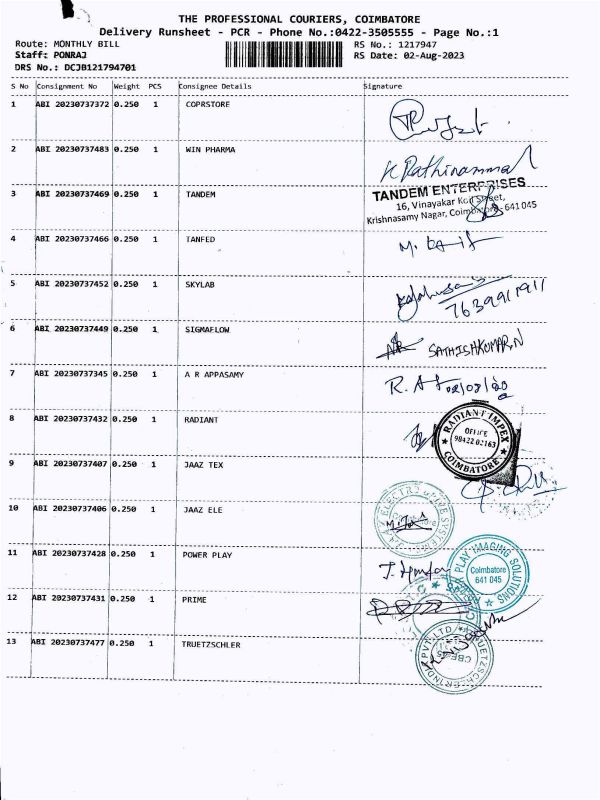 THE PROFESSIONAL COURIERS, COIMBATORE
Delivery Runsheet - PCR - Phone No.:0422-3505555 - Page No.:1
Route: MONTHLY BILL RS No.: 1217947
Staff: PONRAJ RS Date: 02-Aug-2023
DRS No.: DCJB121794701
S No Consignment No Weight PCS Consignee Details Signature
1 ABI 20230737372 0.250 1 COPRSTORE
2 ABI 20230737483 0.250 1 WIN PHARMA
K Rathinammal
3 ABI 20230737469 0.250 1 TANDEM
TANDEM ENTERPRISES
16, Vinayakar Koil Street,
Krishnasamy Nagar, Coimbatore - 641 045
4 ABI 20230737466 0.250 1 TANFED
5 ABI 20230737452 0.250 1 SKYLAB
7639911911
6 ABI 20230737449 0.250 1 SIGMAFLOW
SATHISHKUMAR.N
7 ABI 20230737345 0.250 1 A R APPASAMY
8 ABI 20230737432 0.250 1 RADIANT
RADIANT IMPEX
OFFICE
98422 02163
COIMBATORE
9 ABI 20230737407 0.250 1 JAAZ TEX
10 ABI 20230737406 0.250 1 JAAZ ELE
11 ABI 20230737428 0.250 1 POWER PLAY
PLAY IMAGING SOLUTIONS
Coimbatore
641 045
12 ABI 20230737431 0.250 1 PRIME
13 ABI 20230737477 0.250 1 TRUETZSCHLER